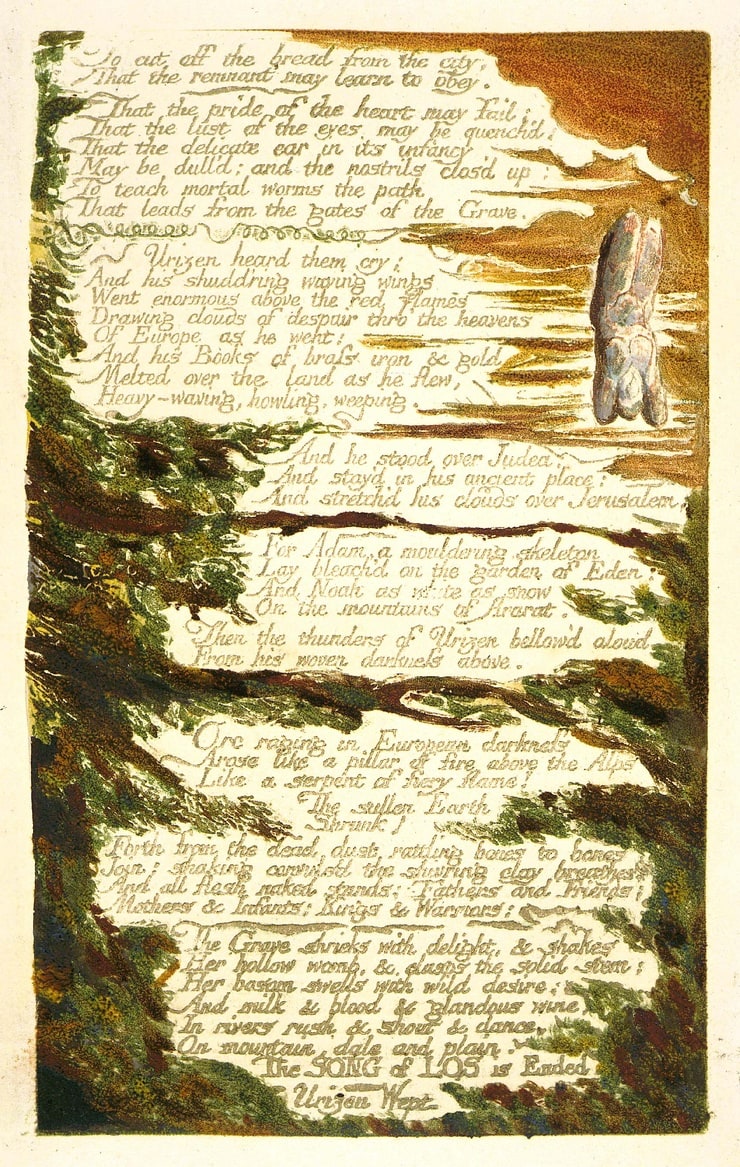 To cut off the bread from the city,
That the remnant may learn to obey.
That the pride of the heart may fail;
That the lust of the eyes, may be quench'd:
That the delicate ear in its infancy
May be dull'd; and the nostrils clos'd up:
To teach mortal worms the path
That leads from the gates of the Grave.
Urizen heard them cry;
And his shudd'ring waving wings
Went enormous above the red flames
Drawing clouds of despair thro' the heavens
Of Europe as he went;
And his Books of brass iron & gold
Melted over the land as he flew,
Heavy-waving, howling, weeping.
And he stood over Judea:
And stay'd in his ancient place:
And stretch'd his clouds over Jerusalem;
For Adam, a mouldering skeleton
Lay bleach'd on the garden of Eden;
And Noah as white as snow
On the mountains of Ararat
Then the thunders of Urizen bellow'd aloud
From his woven darkness above.
Orc raging in European darkness
Arose like a pillar of fire above the Alps
Like a serpent of fiery flame!
The sullen Earth
Shrunk!
Forth from the dead dust rattling bones to bones
Join; shaking convuls'd the shivring clay breathes
And all flesh naked stands: Fathers and Friends;
Mothers & Infants; Kings & Warriors:
The Grave shrieks with delight, & shakes
Her hollow womb, & clasps the solid stem:
Her bosom swells with wild desire:
And milk & blood & glandous wine
In rivers rush & shout & dance,
On mountain, dale and plain.
The SONG of LOS is Ended
Urizen Wept